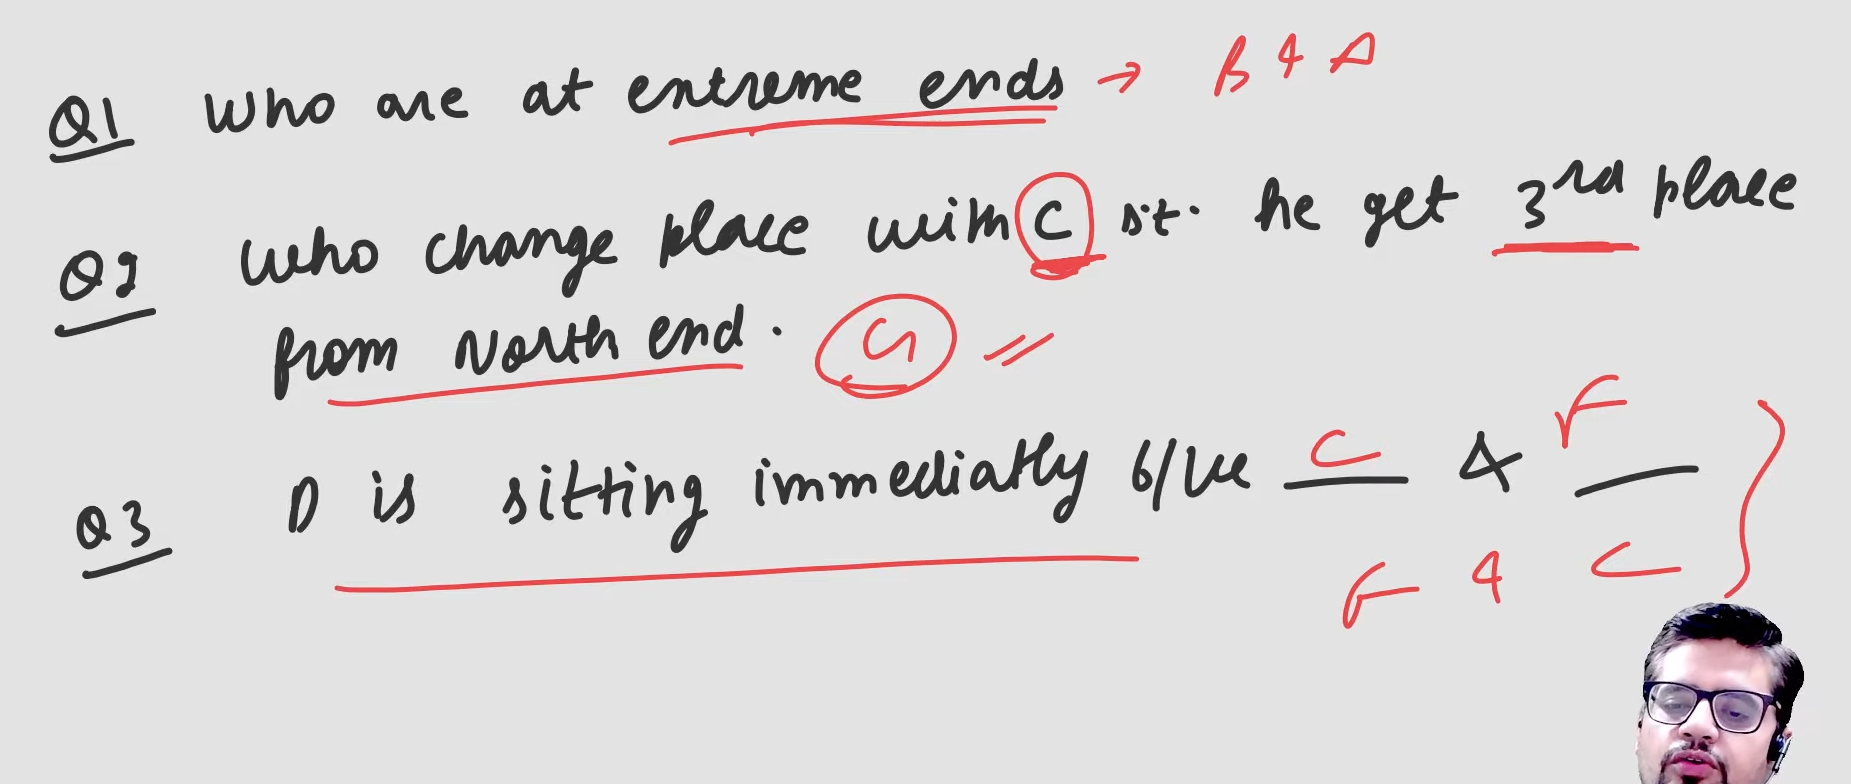 Q1 Who are at extreme ends → B & A
Q2 Who change place with C s.t. he get 3rd place
from North end. G
Q3 D is sitting immediatly b/we C & F
F & C